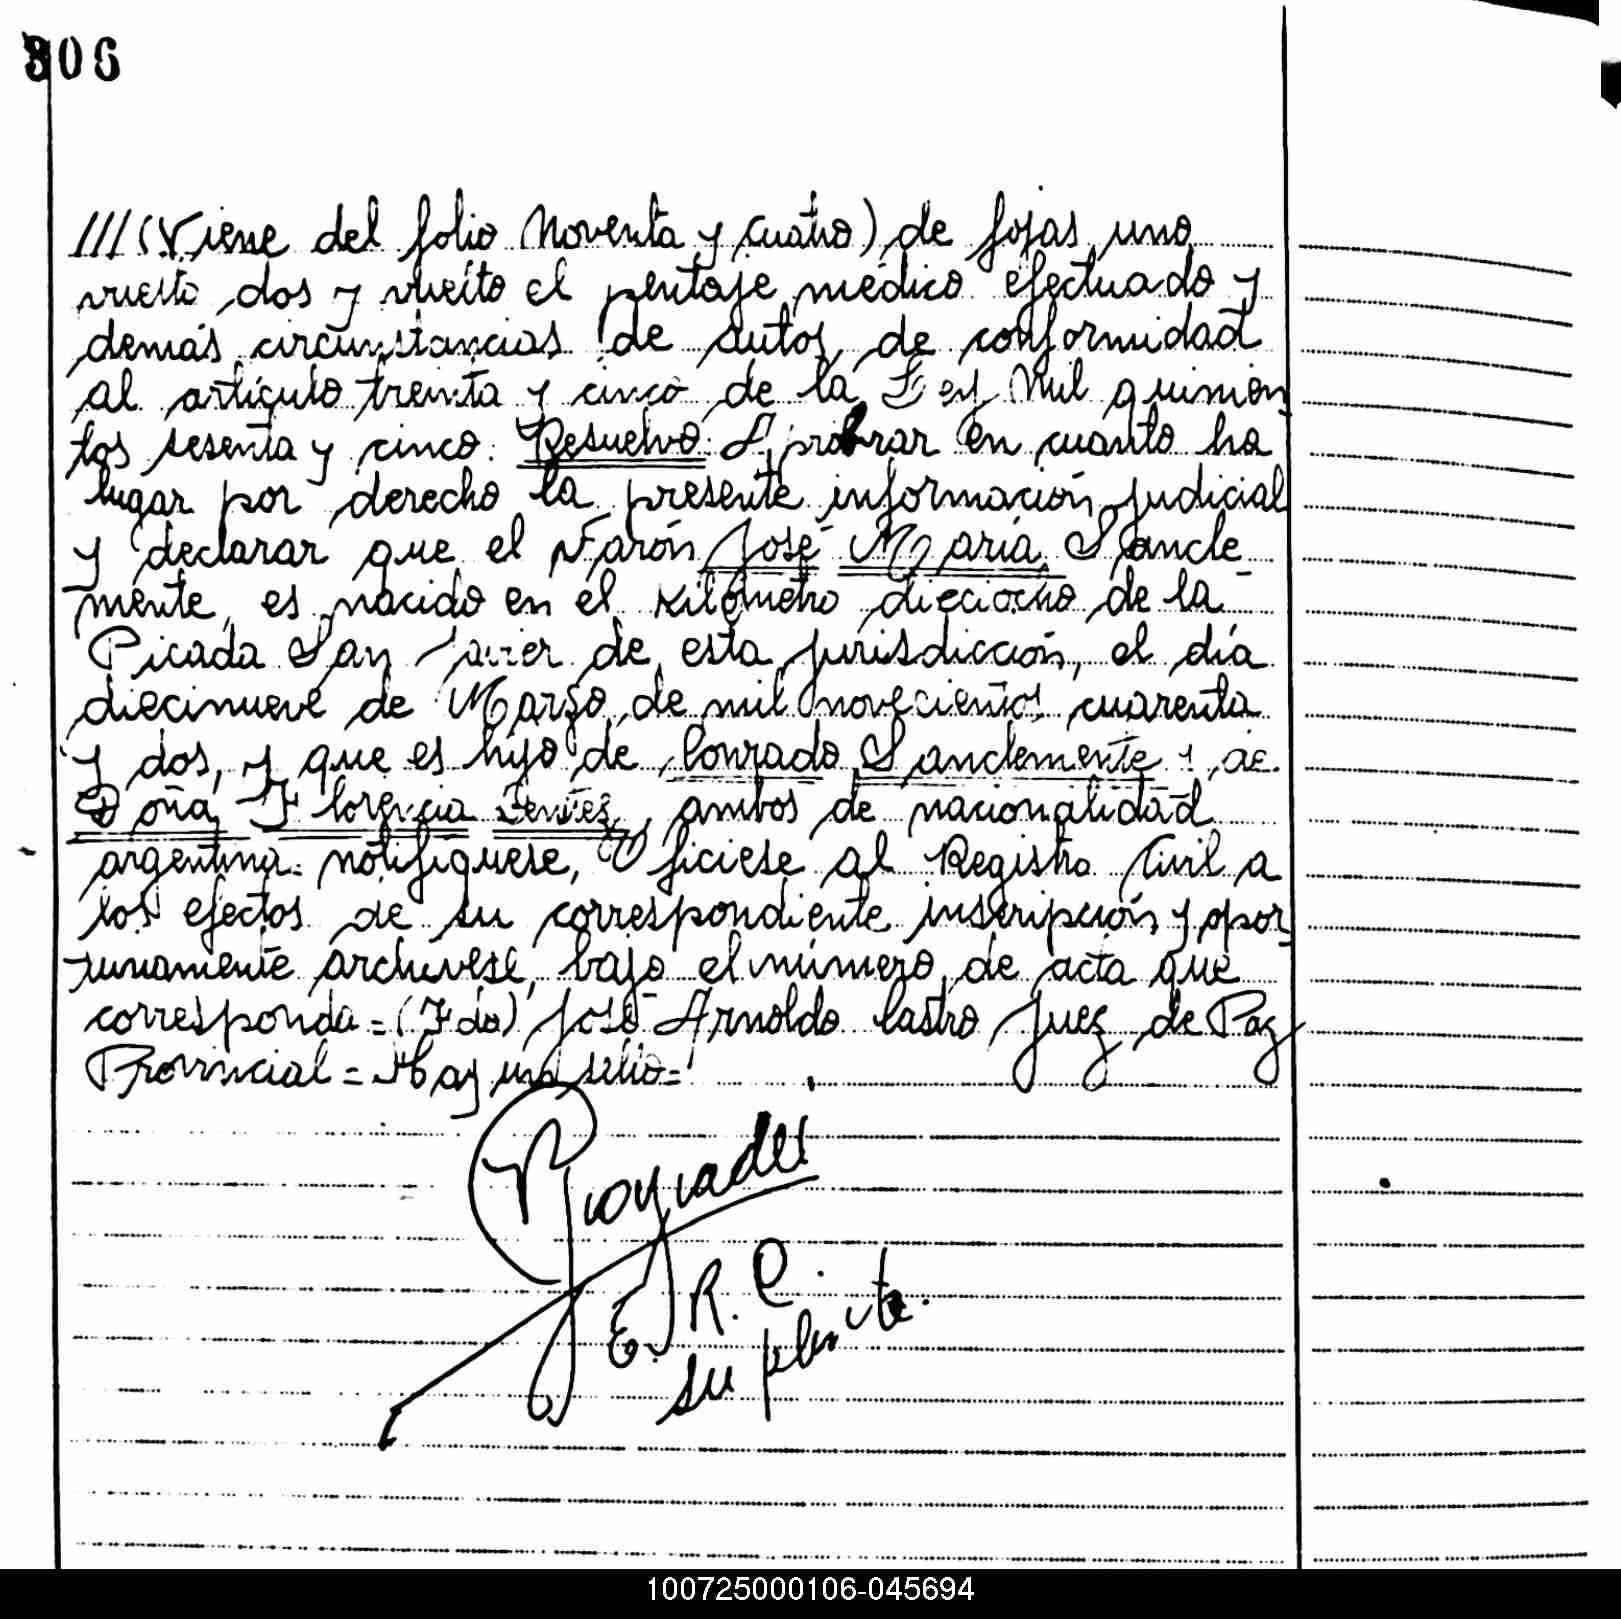 306
///(Viene del folio Noventa y cuatro) de fojas uno
vuelto dos y vuelto el peritaje médico efectuado y
demás circunstancias de autos, de conformidad
al artículo treinta y cinco de la Ley Mil quinien
tos sesenta y cinco. Resuelvo: Aprobrar en cuanto ha
lugar por derecho la presente información judicial
y declarar que el Varón José María Sancle
mente, es nacido en el Kilómetro dieciocho de la
Picada San Javier de esta jurisdicción, el día
diecinueve de Marzo de mil novecientos cuarenta
y dos, y que es hijo de Conrado Sanclemente y de
Doña Florencia, ambos de nacionalidad
argentina. notifíquese, Oficiese al Registro Civil a
los efectos de su correspondiente inscripción y opor
tunamente archivese, bajo el número de acta que
corresponda=(Fdo) José Arnoldo Castro Juez de Paz
Provincial=Hay un sello=
E. R. C.
suplente.
100725000106-045694